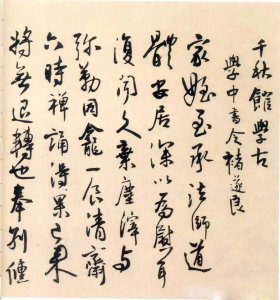 千秋館學古
學中書令褚遂良
家姪至承法師道
體安居深以為慰耳
復聞久棄塵滓与
弥勒同龕一食清齋
六時禪誦得果已來
將無退轉也奉別倏